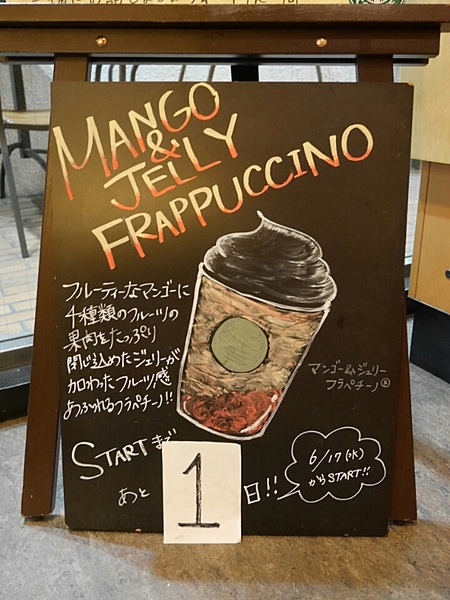 MANGO
&
JELLY
FRAPPUCCINO
フルーティーなマンゴーに
4種類のフルーツの
果肉をたっぷり
閉じ込めたジェリーが
加わったフルーツ感
あふれるフラペチーノ!!
マンゴー&ジェリー
フラペチーノ®
STARTまで
あと
1
日!!
6/17(水)
からSTART!!